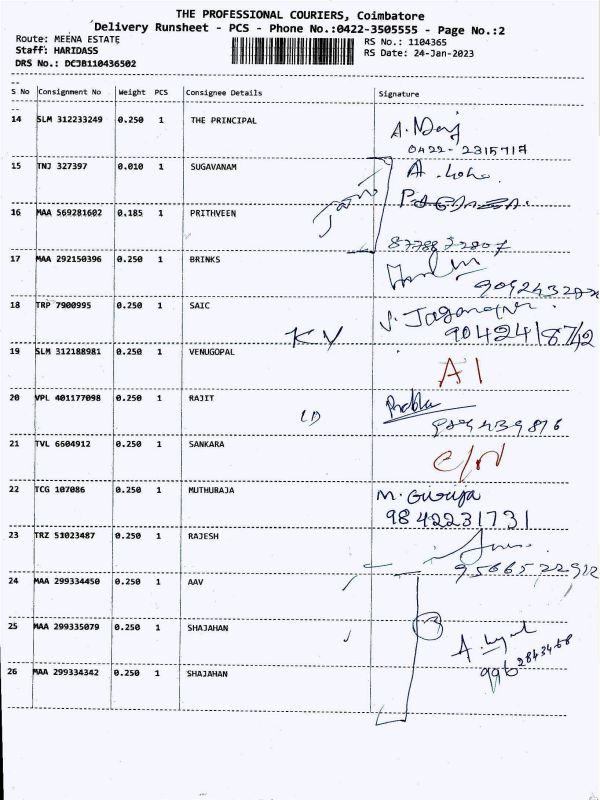 THE PROFESSIONAL COURIERS, Coimbatore
Delivery Runsheet - PCS - Phone No.:0422-3505555 - Page No.:2
Route: MEENA ESTATE
Staff: HARIDASS
DRS No.: DCJB110436502
RS No.: 1104365
RS Date: 24-Jan-2023
S No Consignment No Weight PCS Consignee Details Signature
14 SLM 312233249 0.250 1 THE PRINCIPAL
0422-2315717
15 TNJ 327397 0.010 1 SUGAVANAM
16 MAA 569281602 0.185 1 PRITHVEEN
17 MAA 292150396 0.250 1 BRINKS
18 TRP 7900995 0.250 1 SAIC
KV
9042418742
19 SLM 312188981 0.250 1 VENUGOPAL AI
20 VPL 401177098 0.250 1 RAJIT Prabhu
LD
21 TVL 6604912 0.250 1 SANKARA C/N
22 TCG 107086 0.250 1 MUTHURAJA M. Girija
9842231731
23 TRZ 51023487 0.250 1 RAJESH
9566522912
24 MAA 299334450 0.250 1 AAV
25 MAA 299335079 0.250 1 SHAJAHAN
3
9962843468
26 MAA 299334342 0.250 1 SHAJAHAN